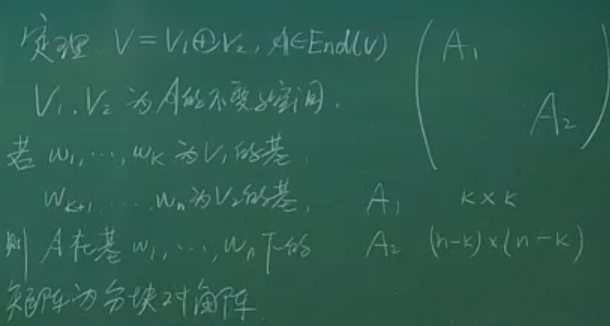 定理 V = V₁⊕V₂, A∈End(V)
V₁, V₂ 为A的不变子空间,
若 w₁, ⋯, wₖ 为V₁的基,
wₖ₊₁, ⋯, wₙ 为V₂的基,
则 A在基 w₁, ⋯, wₙ 下的
矩阵为分块对角阵
A₁
A₂
A₁ k×k
A₂ (n-k)×(n-k)